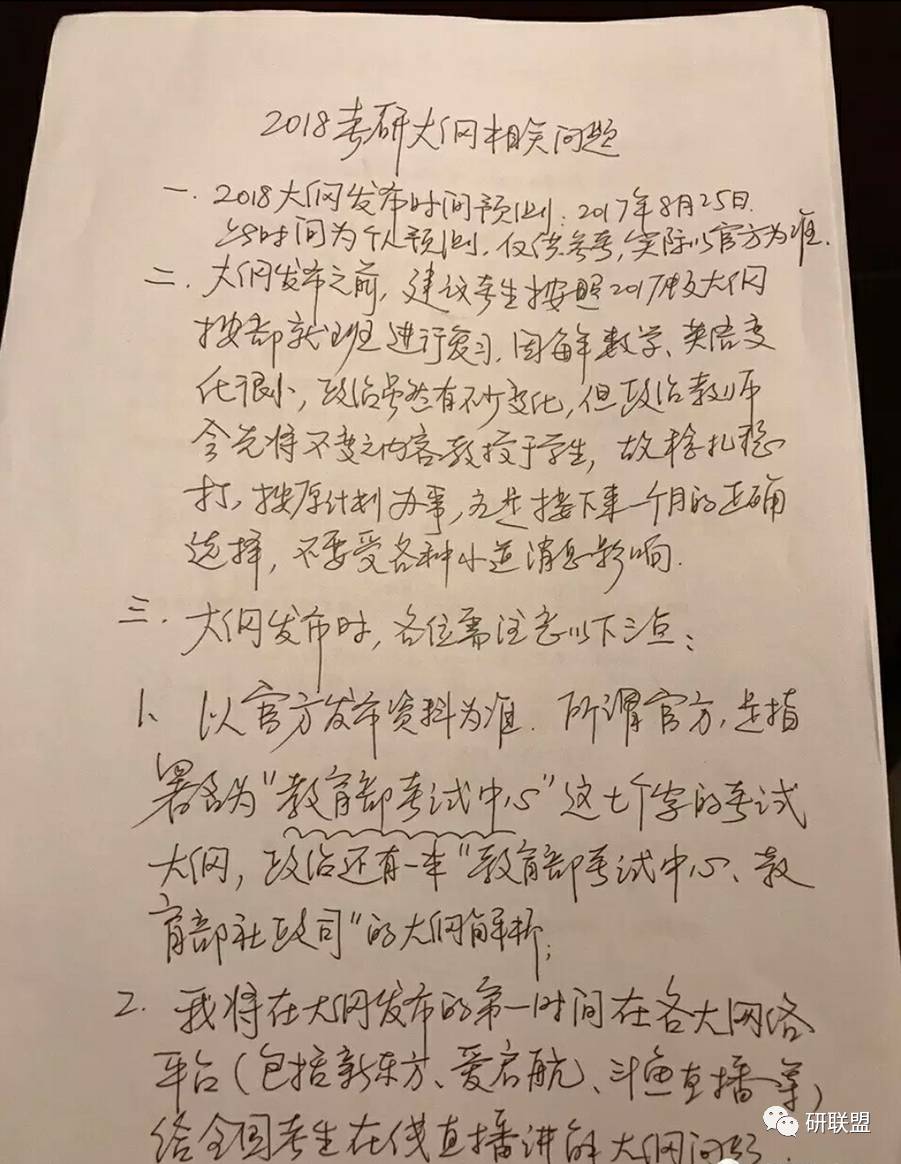 2018考研大纲相关问题
一. 2018大纲发布时间预测: 2017年8月25日.
此时间为个人预测, 仅供参考, 实际以官方为准.
二. 大纲发布之前, 建议考生按照2017版大纲
按部就班进行复习. 因每年数学、英语变
化很小, 政治虽然有不少变化, 但政治教师
会先将不变之内容教授于学生, 故稳扎稳
打, 按原计划办事, 方是接下来一个月的正确
选择, 不要受各种小道消息影响.
三. 大纲发布时, 各位需注意以下三点:
1、以官方发布资料为准. 所谓官方, 是指
署名为"教育部考试中心"这七个字的考试
大纲, 政治还有一本"教育部考试中心、教
育部社政司"的大纲解析;
2. 我将在大纲发布的第一时间在各大网络
平台(包括新东方、爱启航、斗鱼直播等)
给全国考生在线直播讲解大纲问题.
研联盟